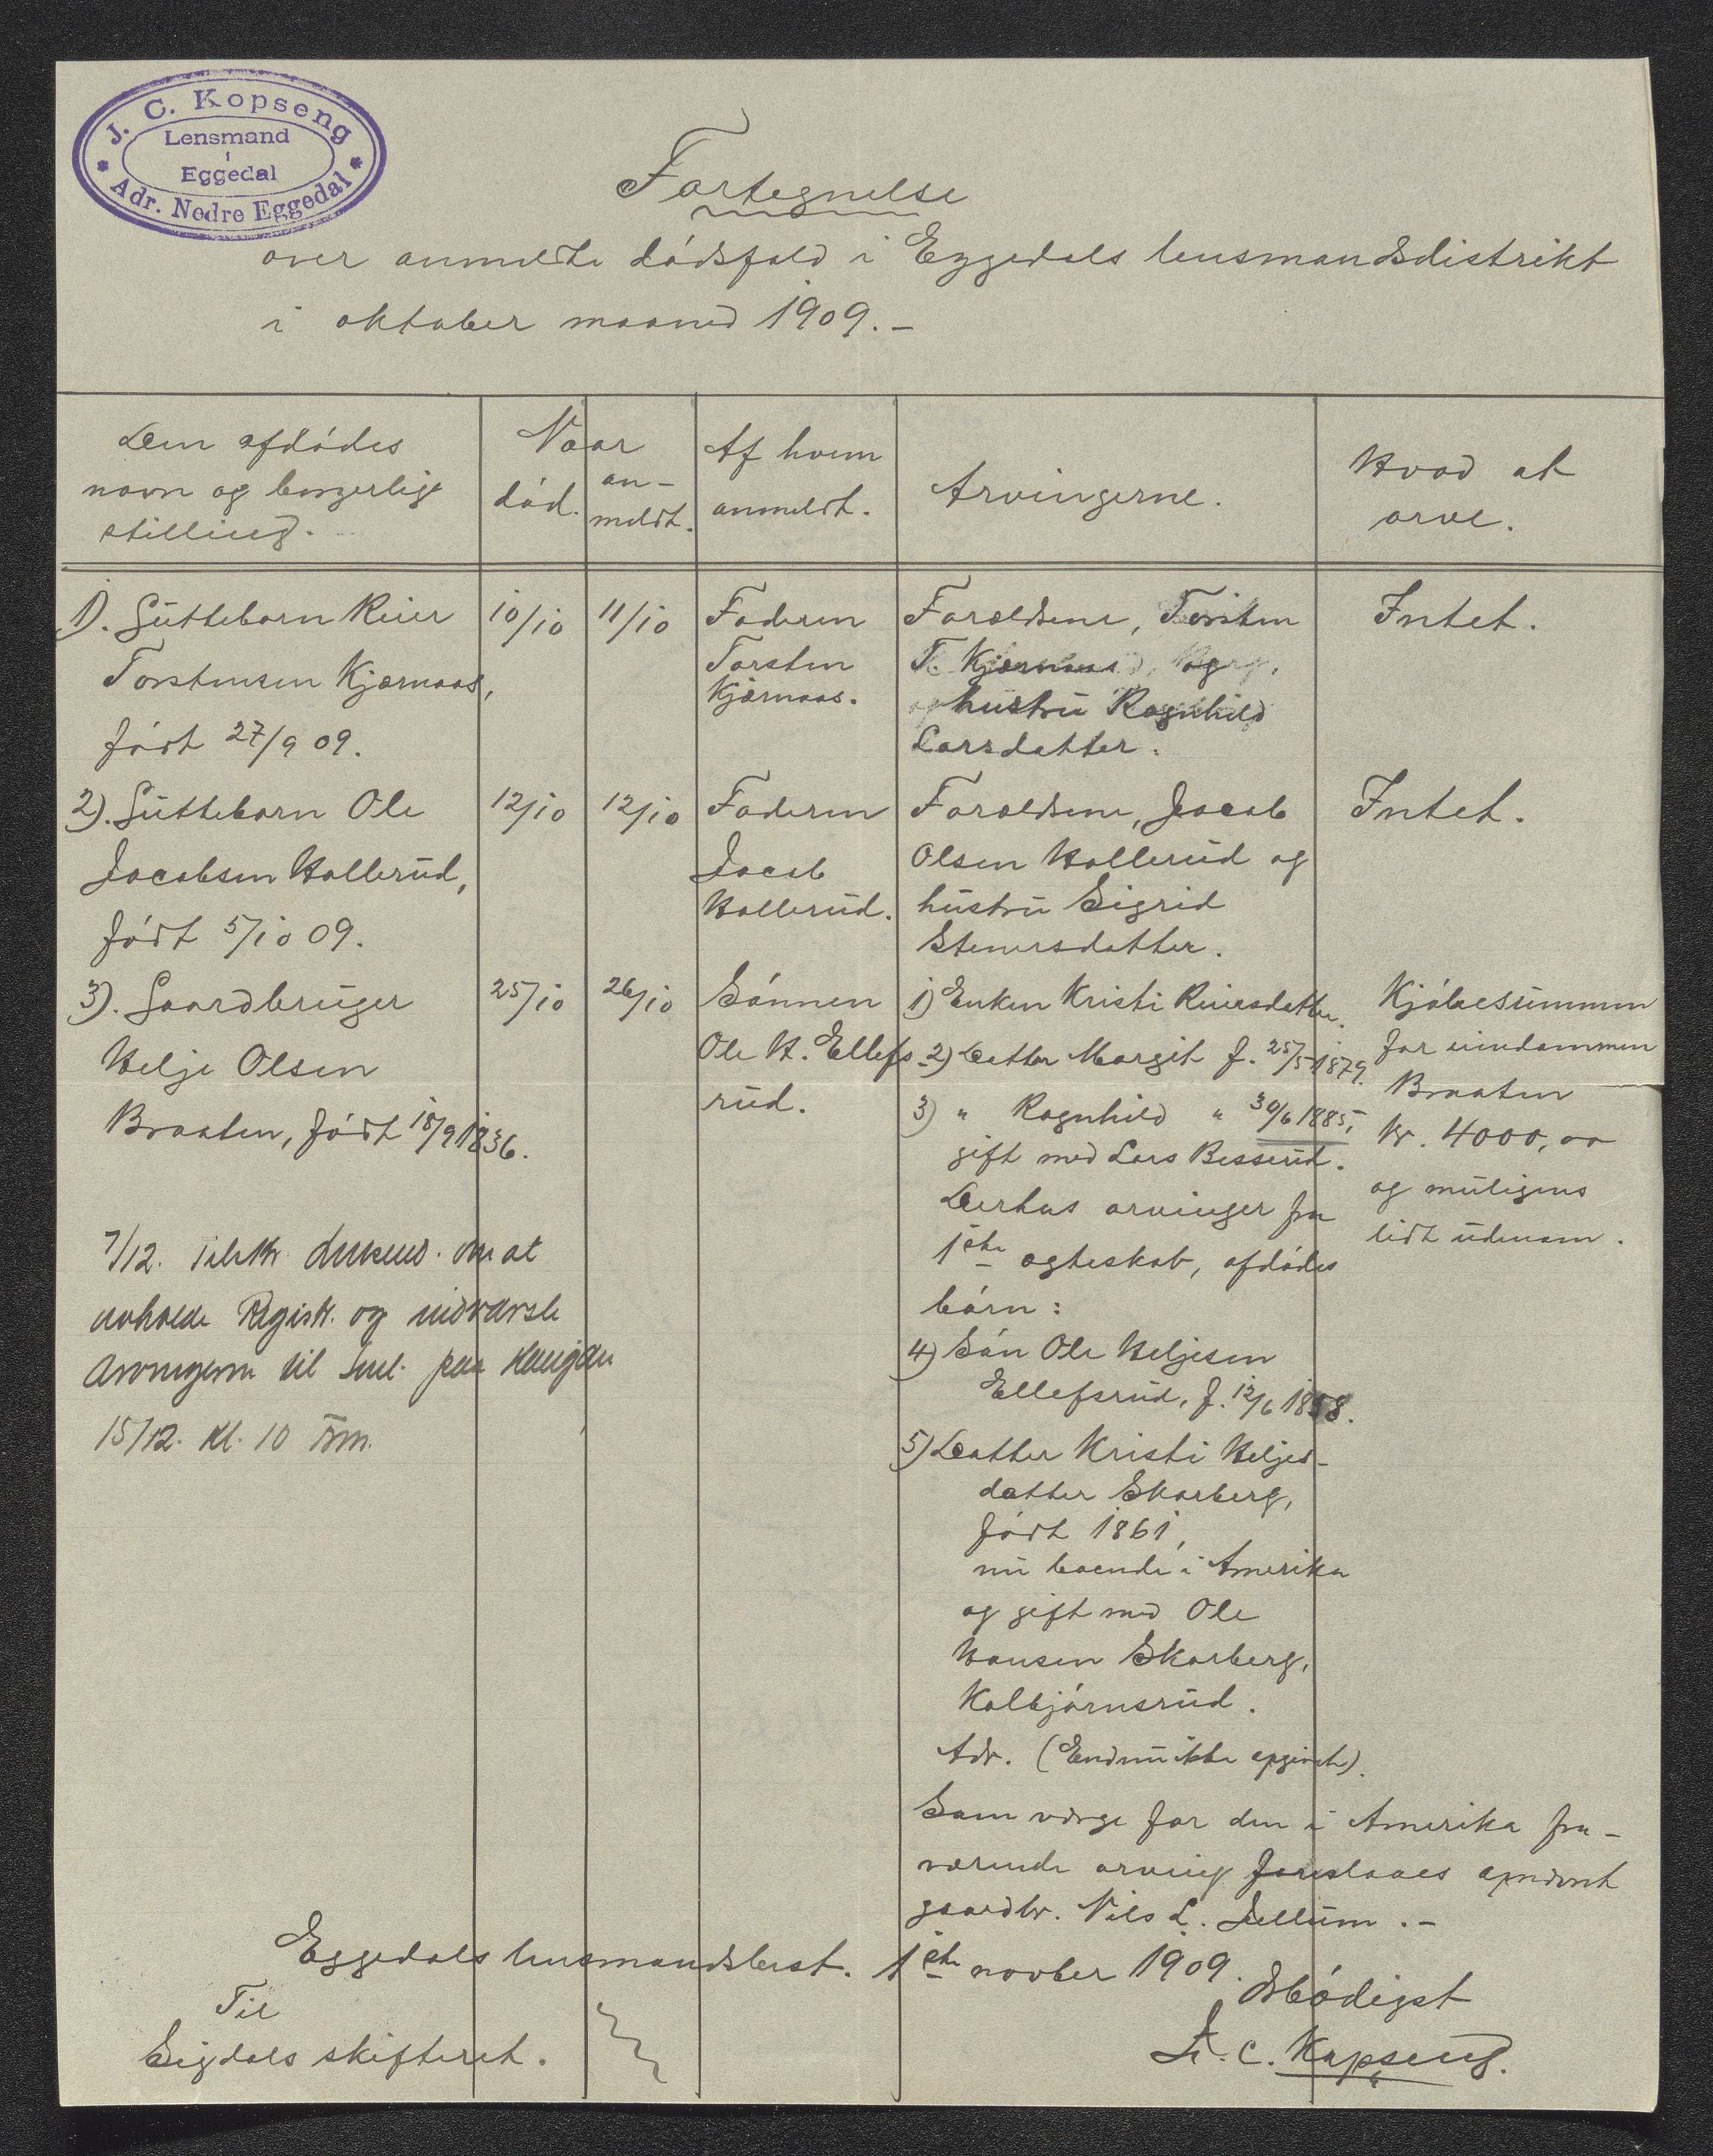 J. C. Kopseng
Lensmand
i
Eggedal
Adr. Nedre Eggedal
Fortegnelse
over anmeldte dødsfald i Eggedals lensmandsdistrikt
i oktober maaned 1909.-
Den afdødes
navn og borgerlige
stilling.
Naar
død.
an-
meldt.
Af hvem
anmeldt.
Arvingerne.
Hvad at
arve.
1). Guttebarn Reier
Torstensen Kjærnaas,
født 27/9 09.
10/10
11/10
Faderen
Torsten
Kjærnaas.
Forældrene, Torsten
T. Kjærnaas og
hustru Ragnhild
Larsdatter.
Intet.
2). Guttebarn Ole
Jacobsen Hollerud,
født 5/10 09.
12/10
12/10
Faderen
Jacob
Hollerud.
Forældrene, Jacob
Olsen Hollerud og
hustru Sigrid
Stenersdatter.
Intet.
3). Gaardbruger
Helje Olsen
Braaten, født 18/9 1836.
25/10
26/10
Sønnen
Ole H. Ellefs-
rud.
1) Enken Kristi Reiersdatter.
2) Datter Margit f. 25/5 1879.
3) " Ragnhild " 30/6 1885,
gift med Lars Besserud.
Derhos arvinger fra
1ste ægteskab, afdødes
børn:
4) Søn Ole Heljesen
Ellefsrud, f. 12/6 1858.
5) Datter Kristi Heljes-
datter Skarberg,
født 1861,
nu boende i Amerika
og gift med Ole
Hansen Skarberg,
Kolbjørnsrud.
Adr. (Endnu ikke opgivet).
Som værge for den i Amerika fra-
værende arving foreslaaes opnævnt
gaardbr. Nils L. Jellum.-
Kjøbesummen
for eiendommen
Braaten
Kr. 4000,00
og muligens
lidt udenom.
7/12. om at
avholde Registr. og indvarsle
Arvingerne til paa
15/12. Kl. 10 Fm.
Eggedals lensmandsbest. 1ste novber 1909.
Ærbødigst
J. C. Kopseng.
Til
Sigdals skifteret.